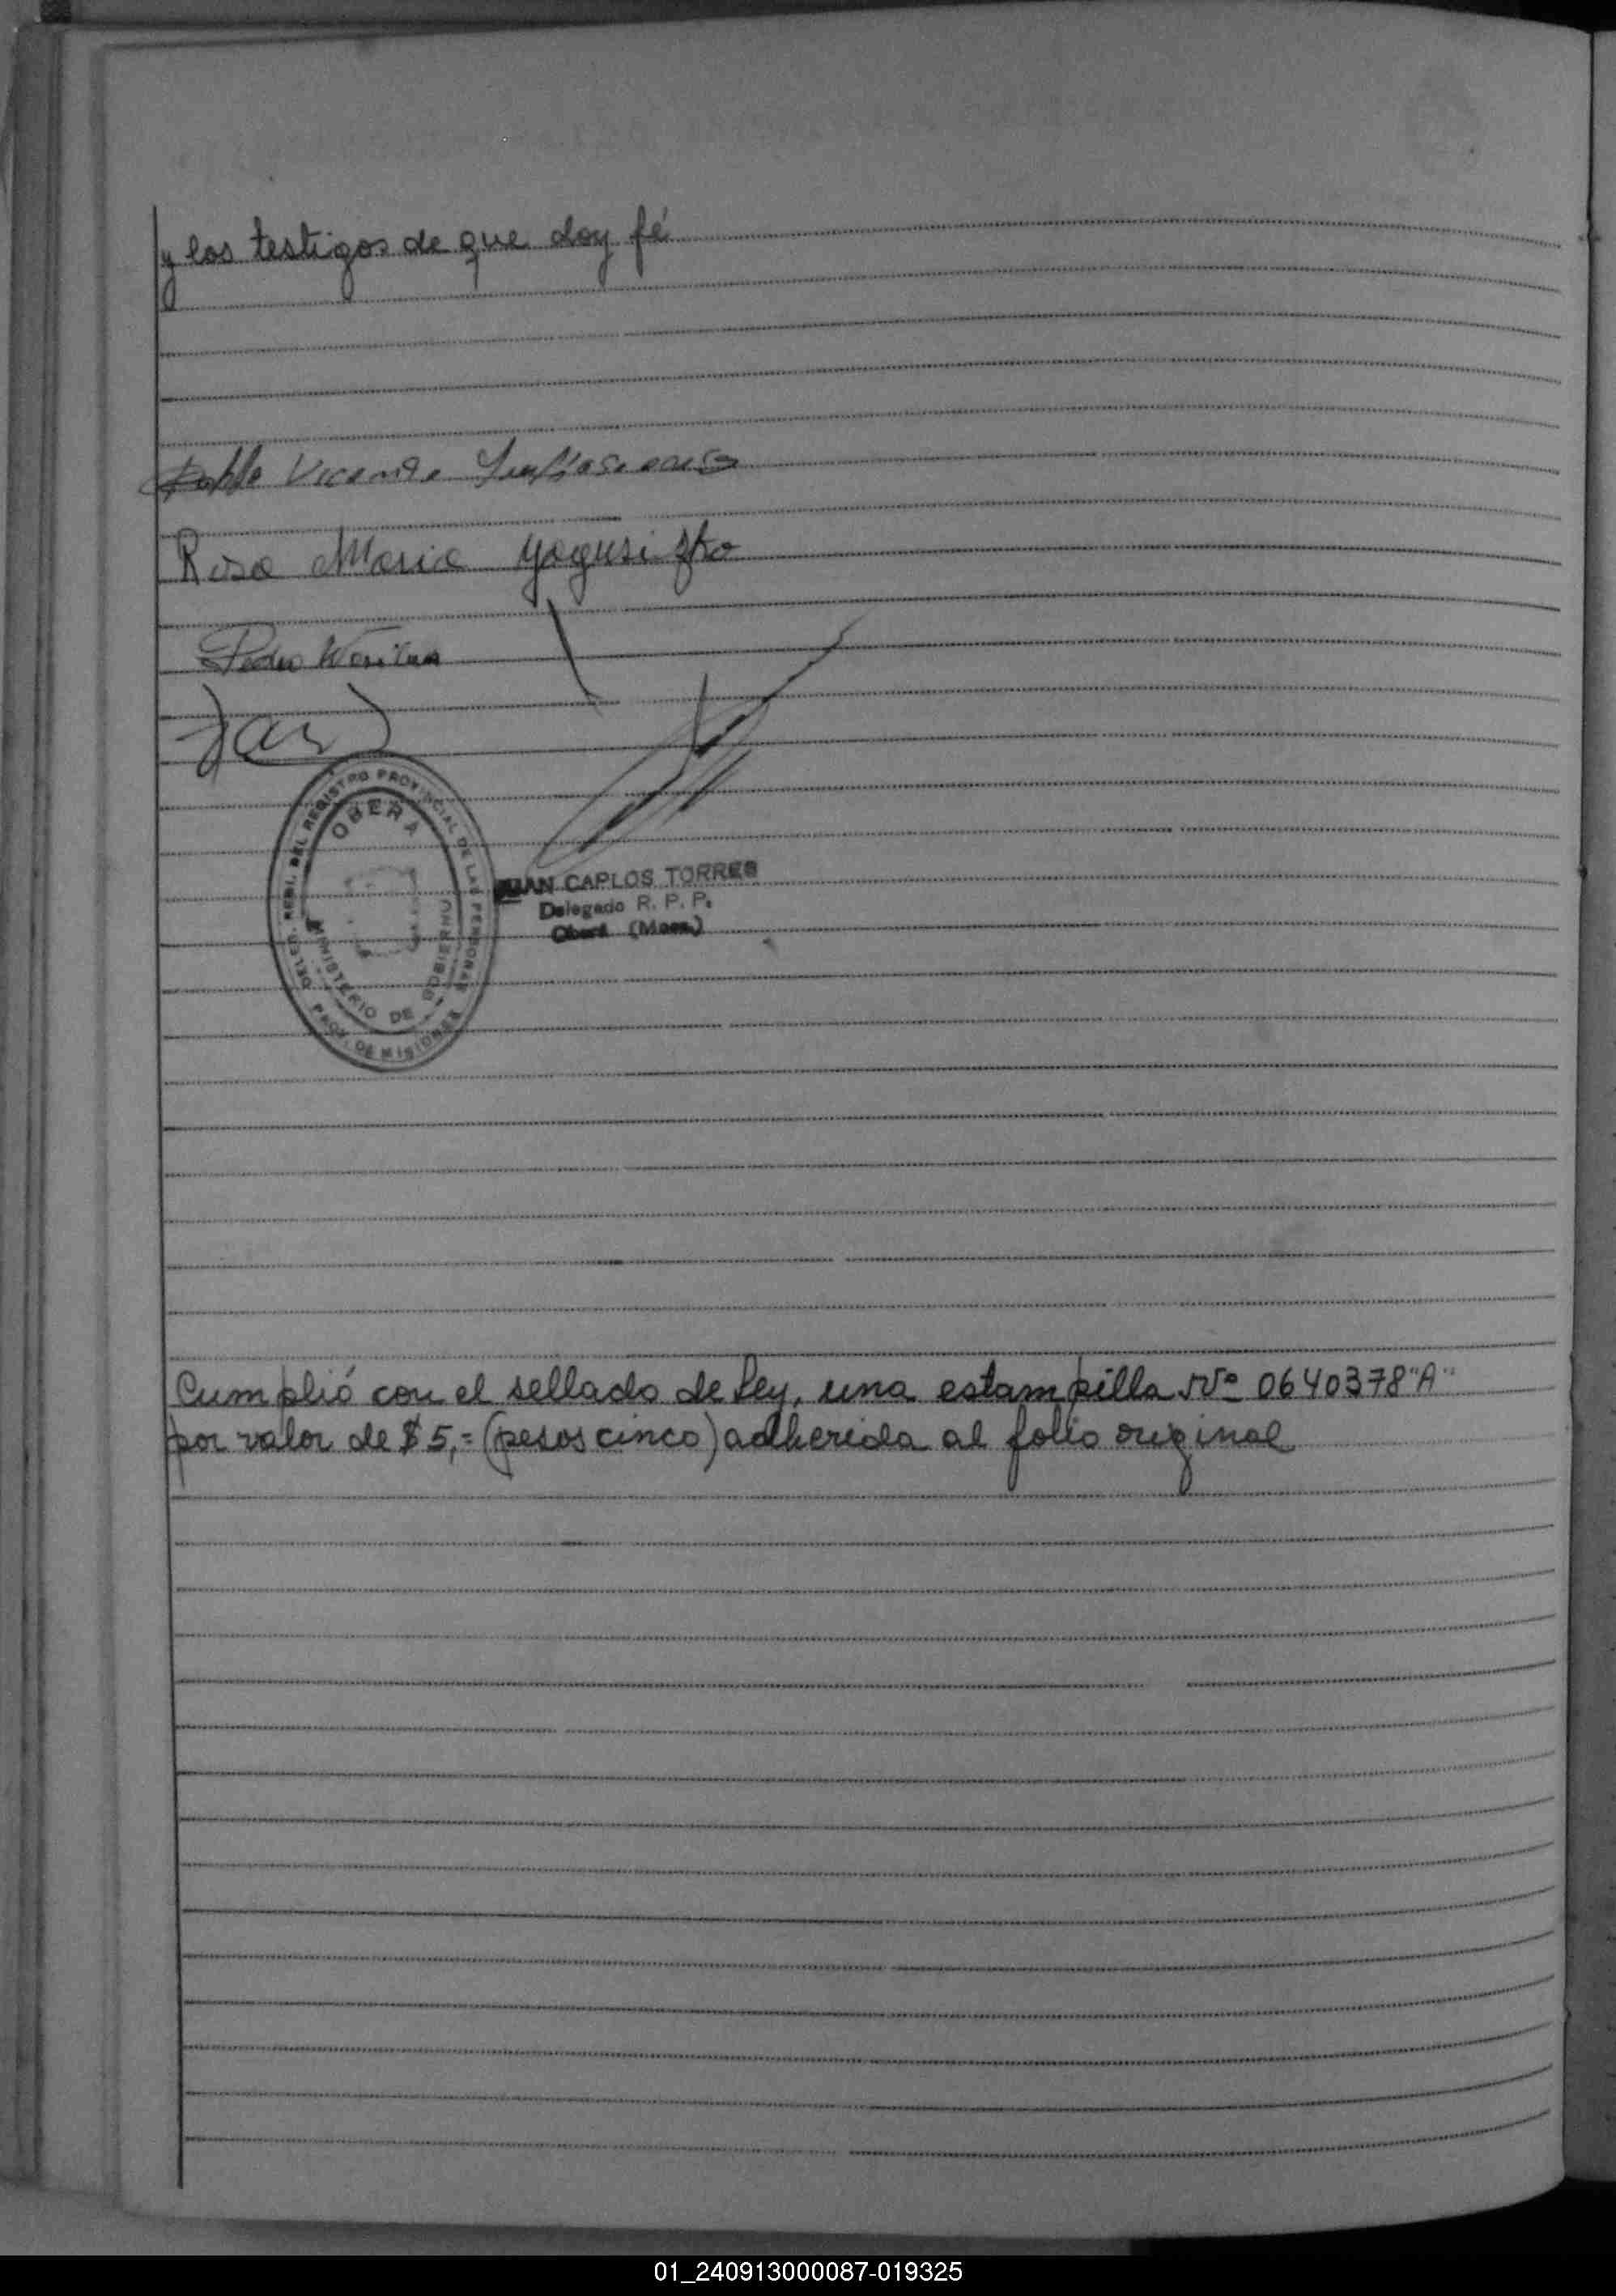 y los testigos de que doy fé
Pablo Vicente
Rosa Maria Yagusizko
Pedro
DELEG. DEL REGISTRO PROVINCIAL DE LAS PERSONAS
OBERA
MINISTERIO DE GOBIERNO
PROV. DE MISIONES
JUAN CARLOS TORRES
Delegado R. P. P.
Oberá (Mnes.)
Cumplió con el sellado de Ley, una estampilla Nº 0640378 "A"
por valor de $ 5,= (pesos cinco) adherida al folio original
01_240913000087-019325